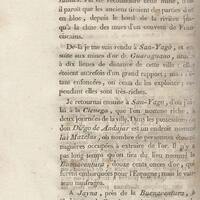 paroît que les anciens tirèrent des parties d'or
en bloc, depuis le bord de la rivière jus-
qu'à la cîme des murs d'un couvent de Fran-
ciscains.
De-là je me suis rendu à San-Yago, et en-
suite aux mines d'or d. Guaraguano, une
à dix lieues de distance de cette ville : elles
étoient autrefois d'un grand rapport ; mai
tant enfoncées, on cessa de les exploiter ;
pendant elles sont très-riches.
Je retournai ensuite à San-Yago, d'où j'al-
lai à la Cienega, que l'on nomme riche, à
deux journées de la ville. Dans les possessions
don Diégo de Andujar est un endroit nommé
las Mazetas, où nombre de personnes étoient
occupées à extraire de l'or. Il
pas long-temps qu'on tira du lieu nommé
Buenaventura, douze cents onces d'or, qui
furent embarquées pour l'Espagne ; mais le vais-
seau naufragea.
A Jayna, près de la Buenaventura,